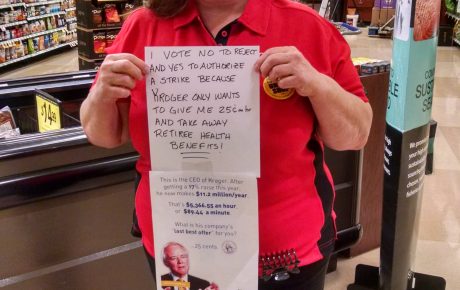 I VOTE NO TO REJECT
AND YES TO AUTHORIZE
A STRIKE BECAUSE
KROGER ONLY WANTS
TO GIVE ME 25¢ an hr
AND TAKE AWAY
RETIREE HEALTH
BENEFITS!
This is the CEO of Kroger. After
getting a 17% raise this year,
he now makes $11.2 million/year
That's $5,366.55 an hour
or $89.44 a minute
What is his company's
"last best offer" for you?
25 cents